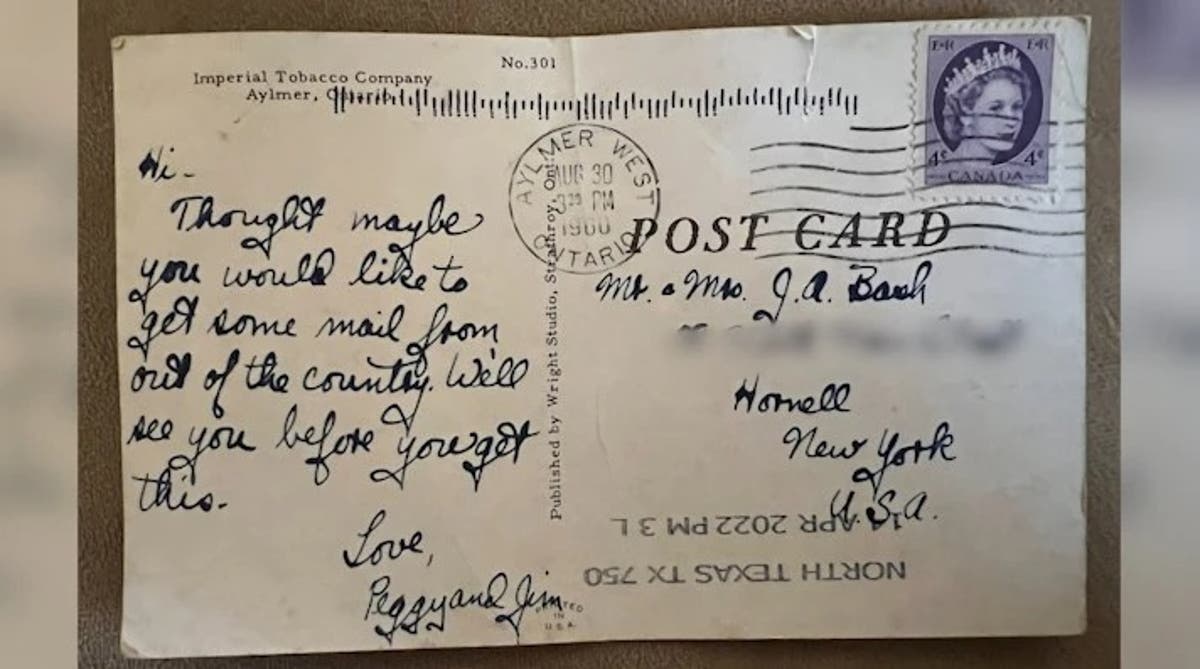 No.301
Imperial Tobacco Company
Aylmer, Ontario
Hi-
Thought maybe
you would like to
get some mail from
out of the country. We'll
see you before you get
this.
Love,
Peggy and Jim
Published by Wright Studio, Strathroy, Ont.
PRINTED
IN
U.S.A.
AYLMER WEST
AUG 30
PM
1960
ONTARIO
E R E R
4c 4c
CANADA
POST CARD
Mr. & Mrs. J.A. Bash
Hornell
New York
U.S.A.
APR 2022 PM 3 L
NORTH TEXAS TX 750